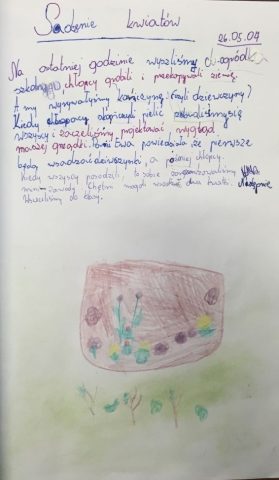 Sadzenie kwiatów
26.05.04
Na ostatniej godzinie wyszliśmy do ogródka
szkolnego chłopcy grabili i przekopywali ziemię.
A my wyrywałyśmy koniczynę (czyli dziewczyny)
Kiedy chłopacy skończyli pielić zebraliśmy się
wszyscy i zaczeliśmy projektować wygląd
naszej grządki. Pani Ewa powiedziała, że pierwsze
będą wsadzać dziewczynki, a później chłopcy.
Kiedy wszyscy posadzili, to sobie zorganizowaliśmy
mini zawody. Chętni mogli wsadzić dwa kwiatki. Następnie
Wróciliśmy do klasy.